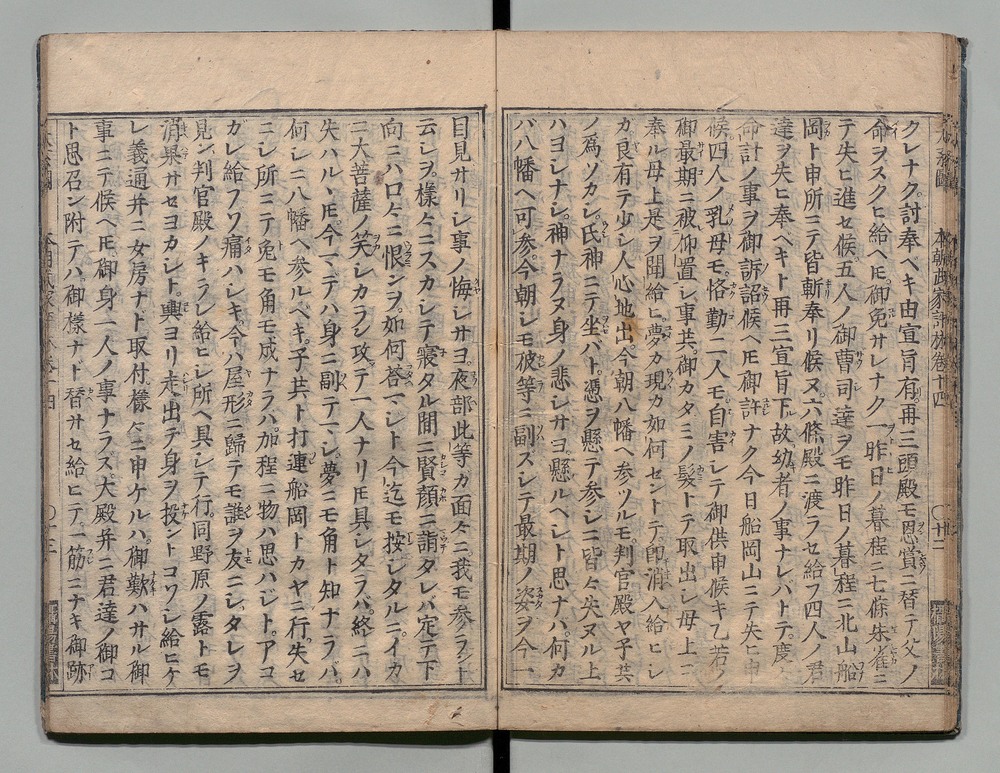 クレナク。討奉ベキ由宣旨有。再三頭殿モ恩賞ニ替テ父ノ
命ヲスクヒ給ヘ𪜈。御免サレナク一昨日ノ暮程ニ七條朱雀ニ
テ失ヒ進セ候。五人ノ御曹司達ヲモ昨日ノ暮程ニ北山船
岡ト申所ニテ皆斬奉リ候ヌ。六條殿ニ渡ラセ給フ四人ノ君
達ヲ失ヒ奉ヘキト再三宣旨下故幼者ノ事ナレバトテ。度〻
命計ノ事ヲ御訴詔候ヘ𪜈御許ナク今日船岡山ニテ失ヒ申
候。四人ノ乳母モ。恪勤二人モ自害レテ御供申候キ乙若ノ
御最期ニ被仰置レ事共。御カタミノ髪トテ取出レ母上ニ
奉ル母上是ヲ聞給ヒ夢カ現カ如何セントテ。即消入給ヒレ
カ良有テ少レ人心地出今朝八幡ヘ参ツルモ。判官殿ヤ子共
ノ爲ゾカレ。氏神ニテ坐バト。憑ヲ懸テ参レニ皆〻失ヌル上
ハヨレナレ。神ナラヌ身ノ悲レサヨ。懸ルヘレト思ナハ。何カ
バ八幡ヘ可参。今朝レモ彼等ニ副ズレテ最期ノ姿ヲ今一
目見サリレ事ノ悔レサヨ。夜部此等カ面〻ニ。我モ参ラント
云レヲ。様〻ニスカレテ寢タル間ニ賢顔ニ詣タレバ定テ下
向ニハ口〻ニ恨ンヲ。如何荅マレト今迄モ按レタルニ。イカ
ニ大菩薩ノ笑レカラン攻テ一人ナリ𪜈具レタラバ。終ニハ
失ハル、𪜈。今マデハ身ニ副テマレ。夢ニモ角ト知ナラバ。
何レニ八幡ヘ参ルベキ。子共ト打連船岡トカヤニ行。失セ
ニレ所ニテ兔モ角モ成ナラハ。加程ニ物ハ思ハジト。アコ
ガレ給フソ痛ハレキ。今ハ屋形ニ歸テモ誰ヲ友ニレ。タレヲ
見ン。判官殿ノキラレ給ヒレ所ヘ具レテ行。同野原ノ露トモ
消果サセヨカレト。輿ヨリ走出テ身ヲ投ントコソレ給ヒケ
レ義通并ニ女房ナト取付。様〻ニ申ケルハ。御歎ハサル御
事ニテ候ヘ𪜈。御身一人ノ事ナラス。大殿并ニ君達ノ御コ
ト思召ン附テハ御様ナト替サセ給ヒテ。一筋ニナキ御跡